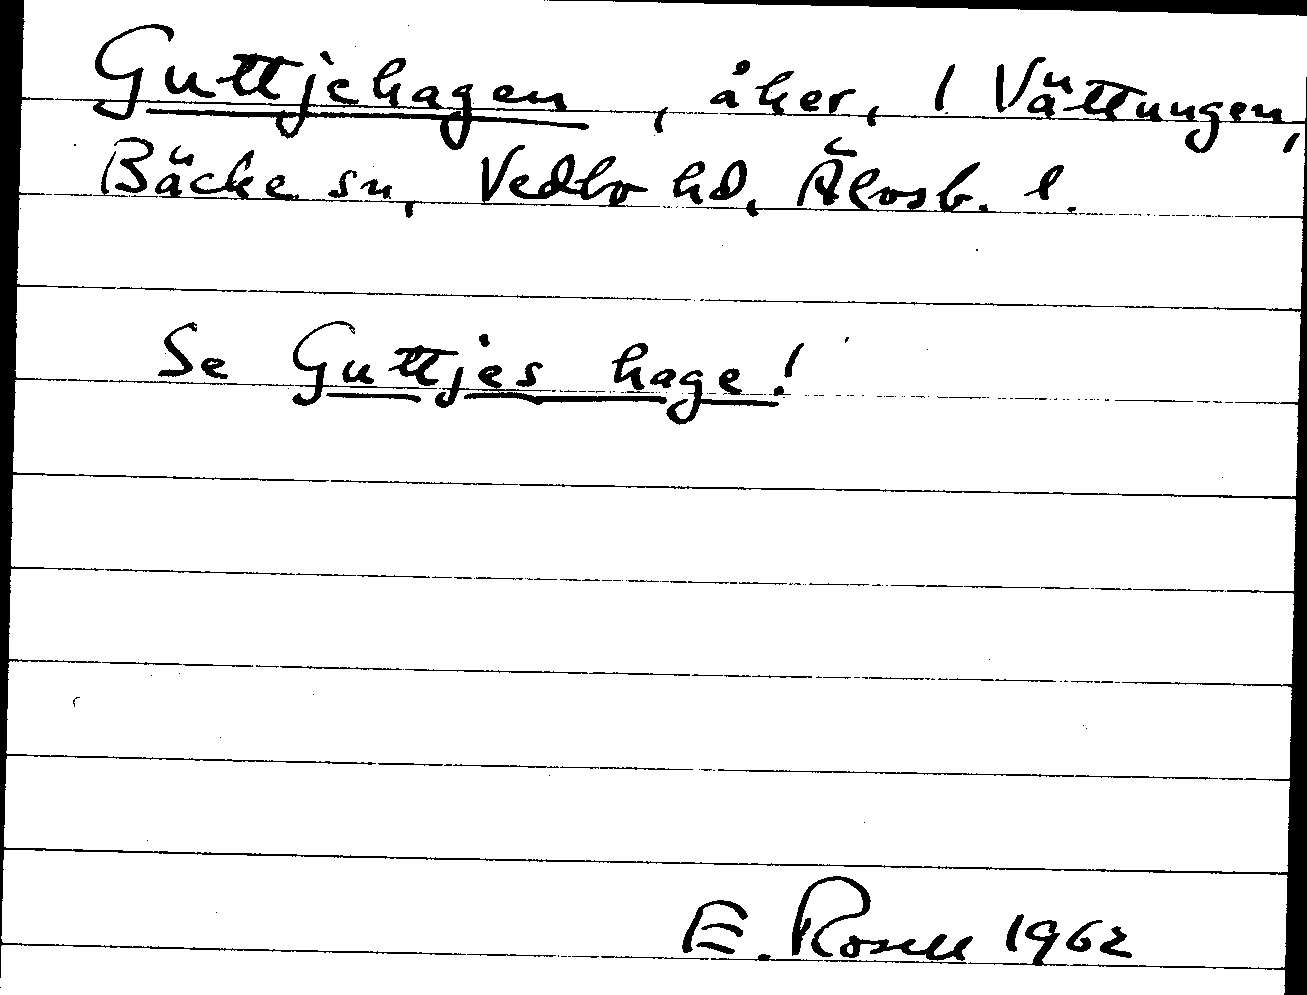 Guttjehagen, åker, 1 Vättungen,
Bäcke sn, Vedbo hd, Älvsb. l.
Se Guttjes hage!
E. Rosell 1962